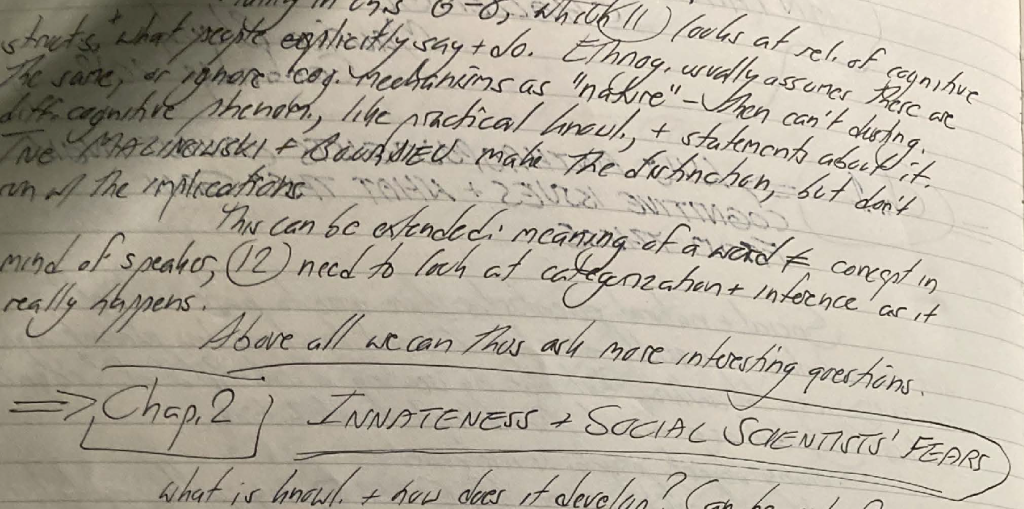 in this 6-8, which (11) looks at rel. of cognitive
structs, + what people explicitly say + do. Ethnog. usually assumes these are
the same, or ignore cog. mechanisms as "nature" – then can't disting.
diff. cognitive phenom., like practical knowl., + statements about it.
MALINOWSKI + BOURDIEU make the distinction, but don't
run w/ the implications
This can be extended: meaning of a word ≠ concept in
mind of speaker, (12) need to look at categorization + inference as it
really happens.
Above all we can thus ask more interesting questions.
⇒ Chap. 2 INNATENESS + SOCIAL SCIENTISTS' FEARS
What is knowl. + how does it develop? Can be